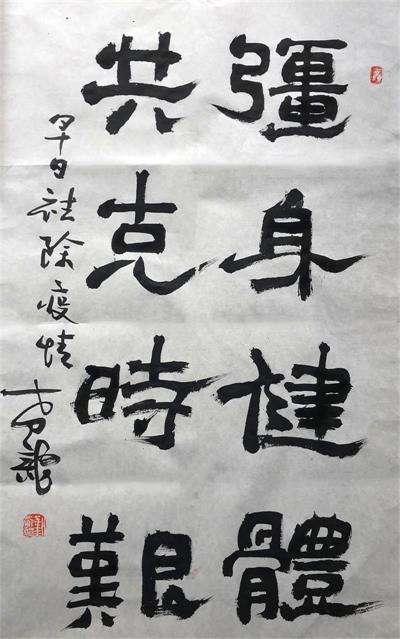 彊身健體
共克時艱
早日祛除疫情